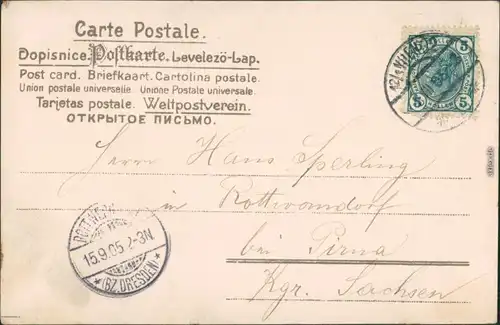 Carte Postale.
Dopisnice. Postkarte. Levelező-Lap.
Post card. Briefkaart. Cartolina postale.
Union postale universelle. Unione Postale universale.
Tarjetas postale. Weltpostverein.
ОТКРЫТОЕ ПИСЬМО.
5 5
Herrn Hans Sperling
in Rottwerndorf
bei Pirna
Kgr. Sachsen
15.9.05. 2-3N
*(BZ. DRESDEN)*